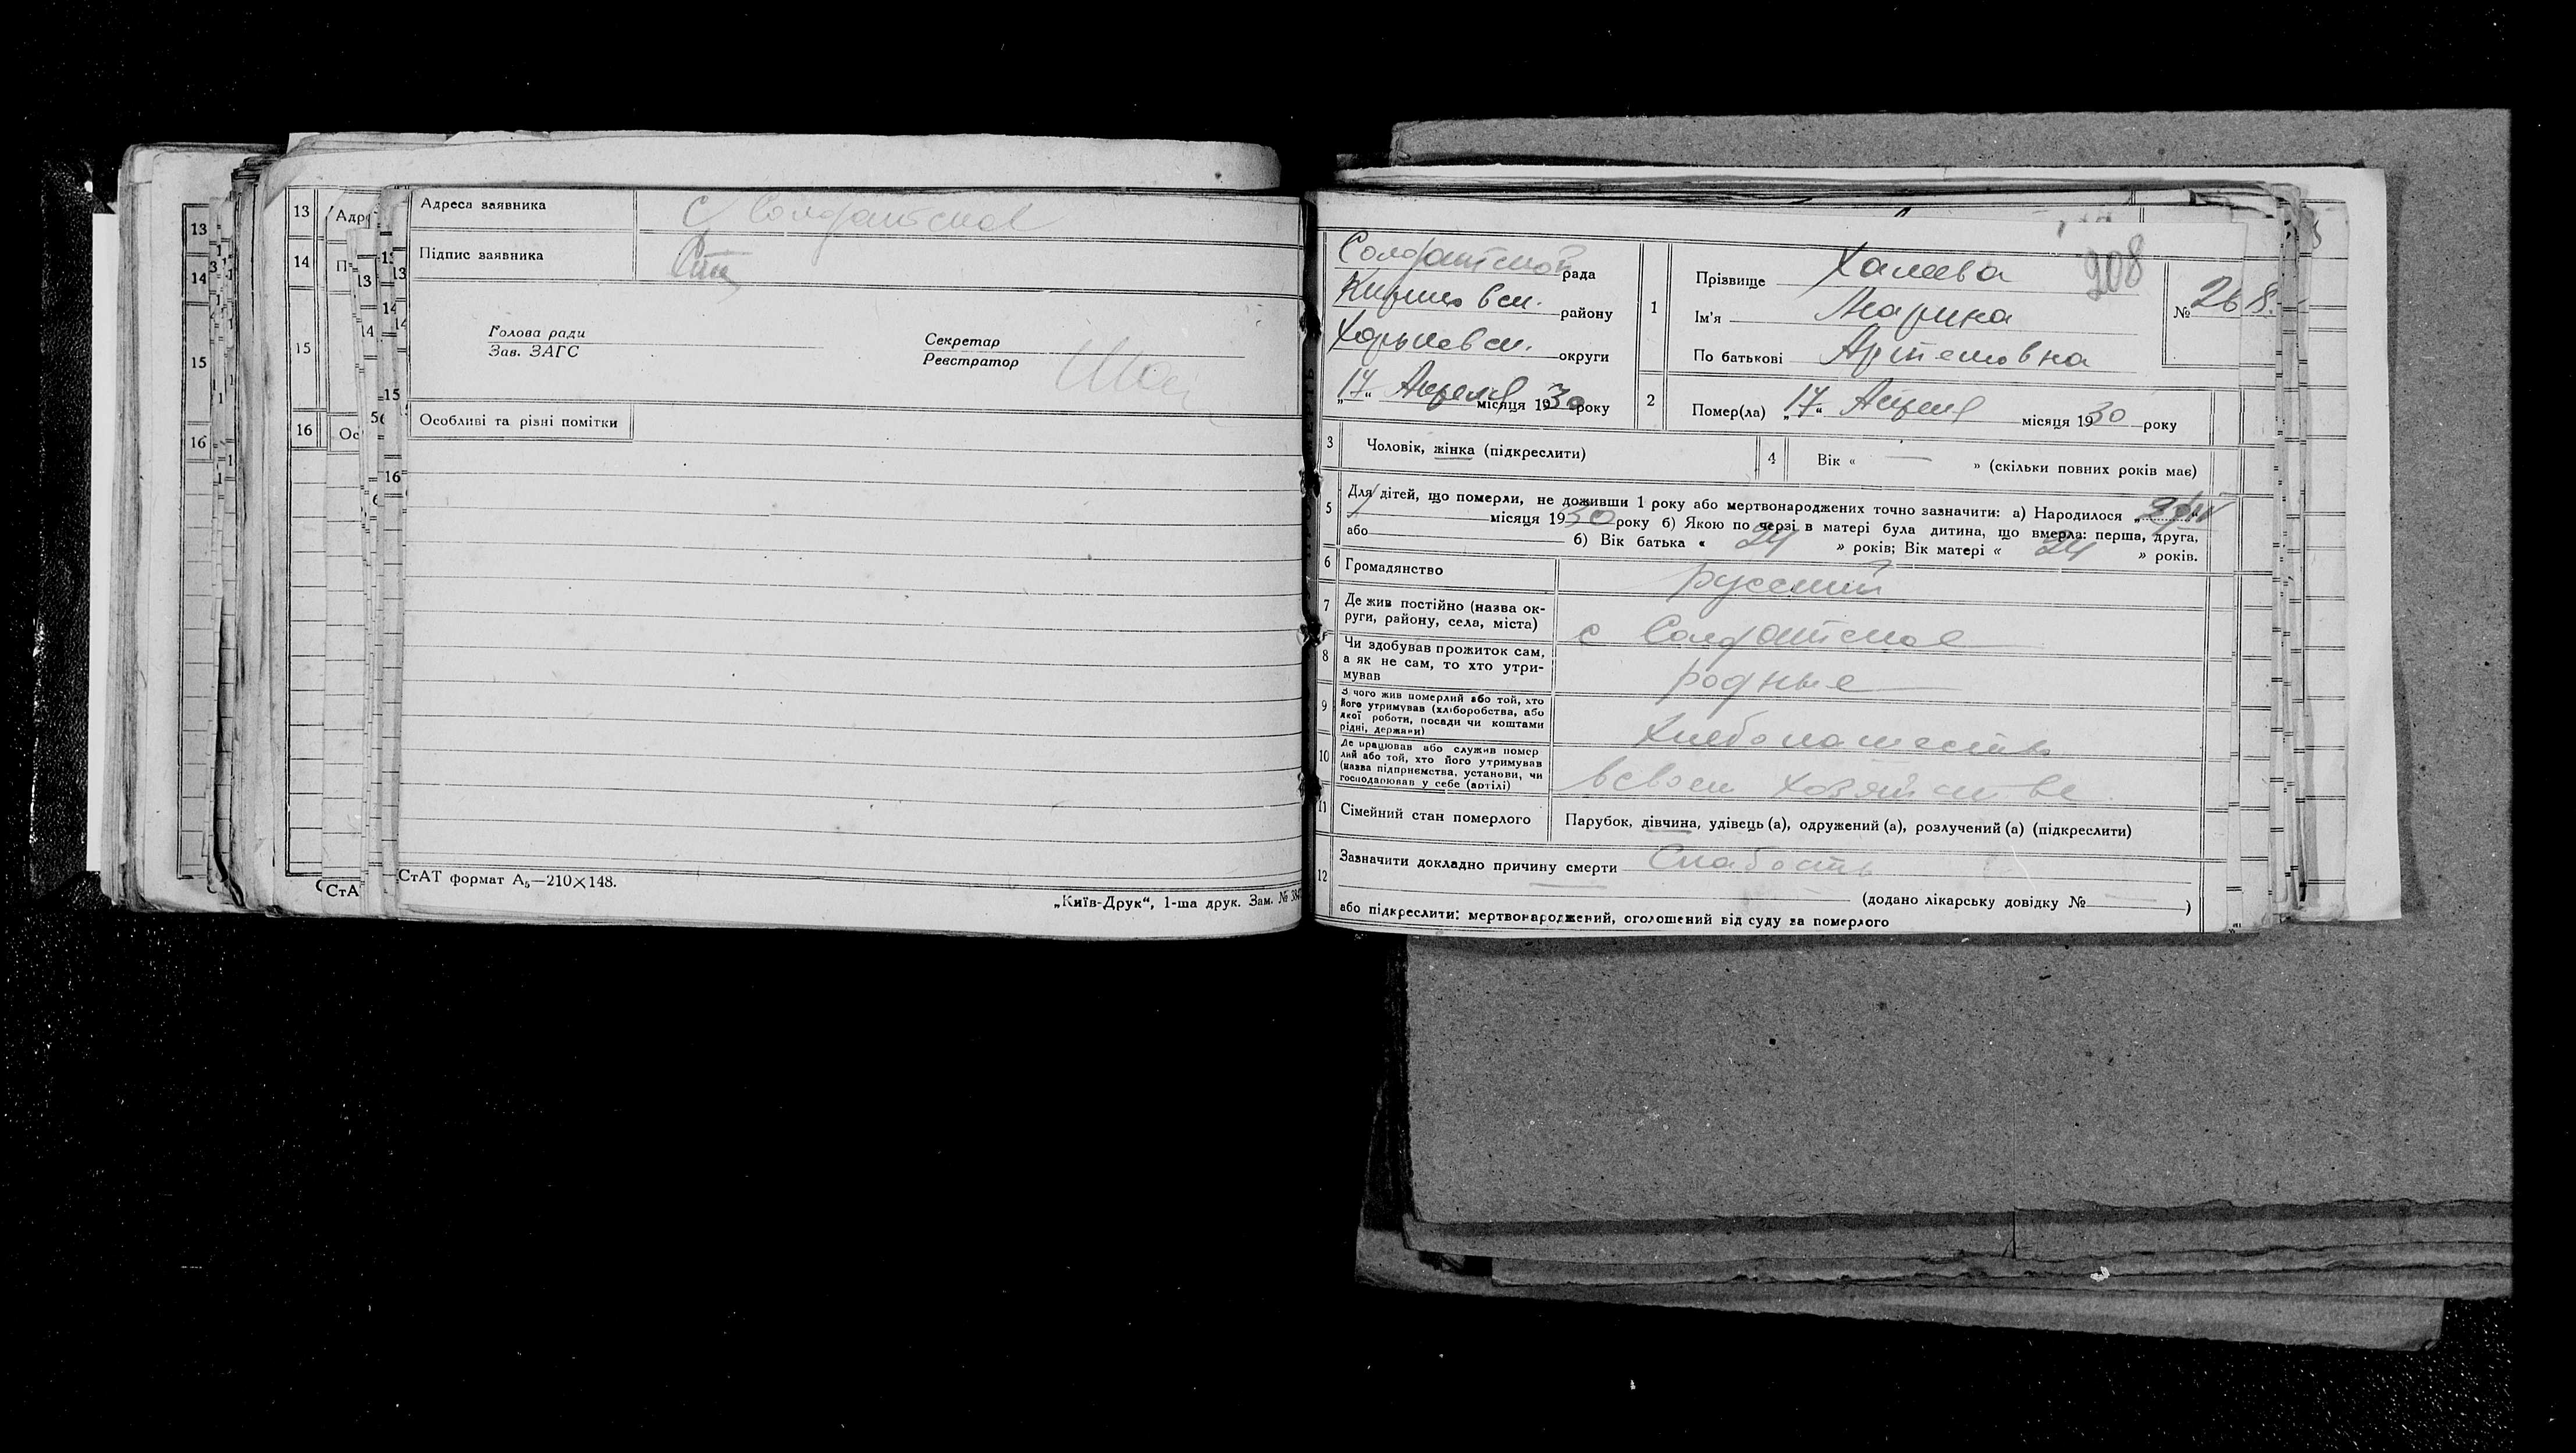 13
14
15
16
Адреса заявника С Солдатское
Підпис заявника
Голова ради
Зав. ЗАГС
Секретар
Реєстратор
Особливі та різні помітки
СтАТ формат А₅—210×148.
„Київ-Друк“, 1-ша друк. Зам. №
Солдатской рада
району
округи
„17“ Апреля місяця 1930 року
1 Прізвище Халева
Ім'я Марина
По батькові Артемовна
208
№ 268.
2 Помер(ла) „17“ Апреля місяця 1930 року
3 Чоловік, жінка (підкреслити)
4 Вік « — » (скільки повних років має)
5 Для дітей, що померли, не доживши 1 року або мертвонароджених точно зазначити: а) Народилося „
місяця 1930 року б) Якою по черзі в матері була дитина, що вмерла: перша, друга,
або б) Вік батька « 24 » років; Вік матері « 24 » років.
6 Громадянство русский
7 Де жив постійно (назва ок-
руги, району, села, міста) с Солдатское
8 Чи здобував прожиток сам,
а як не сам, то хто утри-
мував родные
9 З чого жив померлий або той, хто
його утримував (хліборобства, або
якої роботи, посади чи коштами
рідні, держави) Хлебопашество
10 Де працював або служив помер
лий або той, хто його утримував
(назва підприємства, установи, чи
господарював у себе (артілі) в своем хозяйстве
11 Сімейний стан померлого Парубок, дівчина, удівець (а), одружений (а), розлучений (а) (підкреслити)
12 Зазначити докладно причину смерти Слабость
(додано лікарську довідку № — )
або підкреслити: мертвонароджений, оголошений від суду за померлого